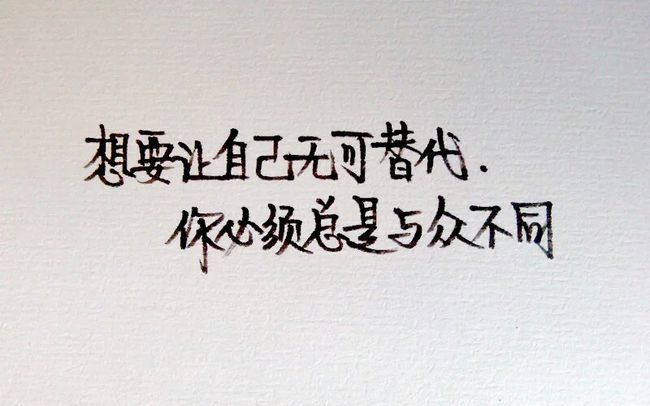 想要让自己无可替代.
你必须总是与众不同